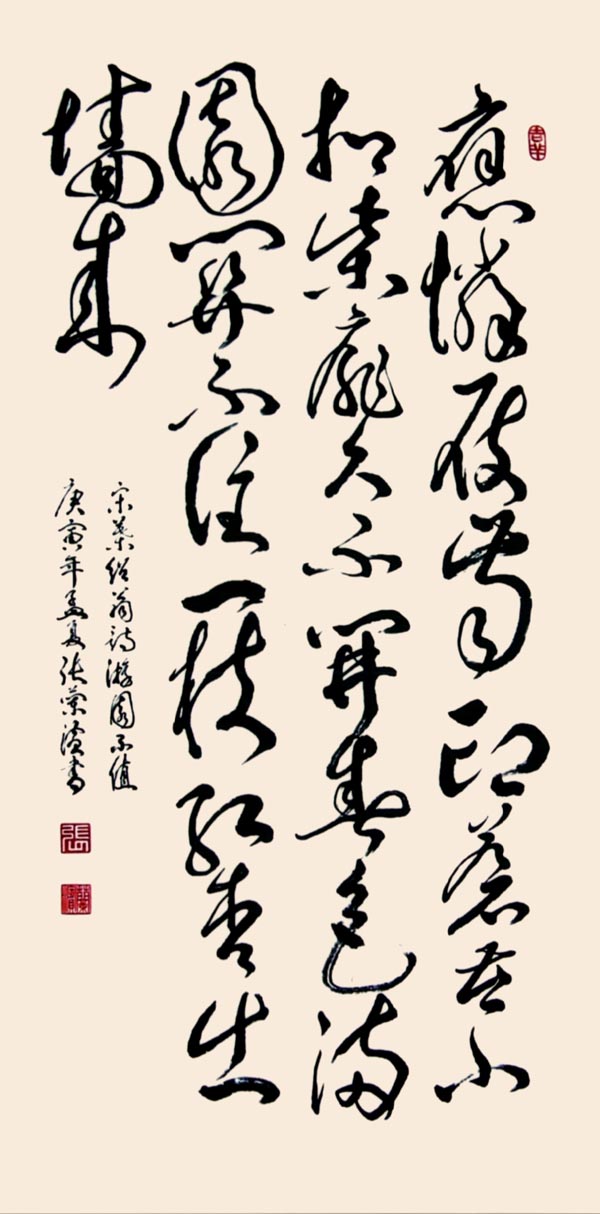 應憐屐齒印蒼苔小
扣柴扉久不開春色滿
園關不住一枝紅杏出
墻來
宋葉紹翁詩游園不值
庚寅年孟夏張書
張